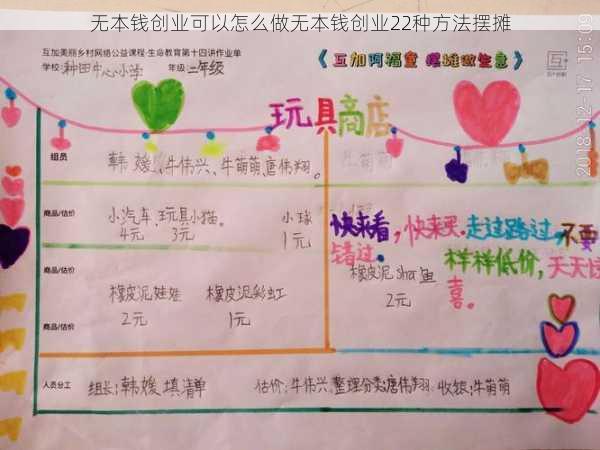 无本钱创业可以怎么做无本钱创业22种方法摆摊
互加美丽乡村网络公益课程·生命教育第十四讲作业单
学校: 种田中心小学 年级: 二年级
《互加阿福童 摆摊做生意》
互+
2018-12-17 15:09
玩具商店
组员
韩媛、牛伟兴、牛萌萌、唐伟翔。
商品/估价
小汽车、玩具小猫。 小球
4元 3元 1元
快来看，快来买，走过路过，不要
错过。
样样低价，天天惊
喜。
商品/估价
橡皮泥娃娃 橡皮泥彩虹
2元 1元
橡皮泥sha鱼
2元
商品/估价
人员分工
组长:韩媛 填清单 估价:牛伟兴、整理分类唐伟翔 收银:牛萌萌